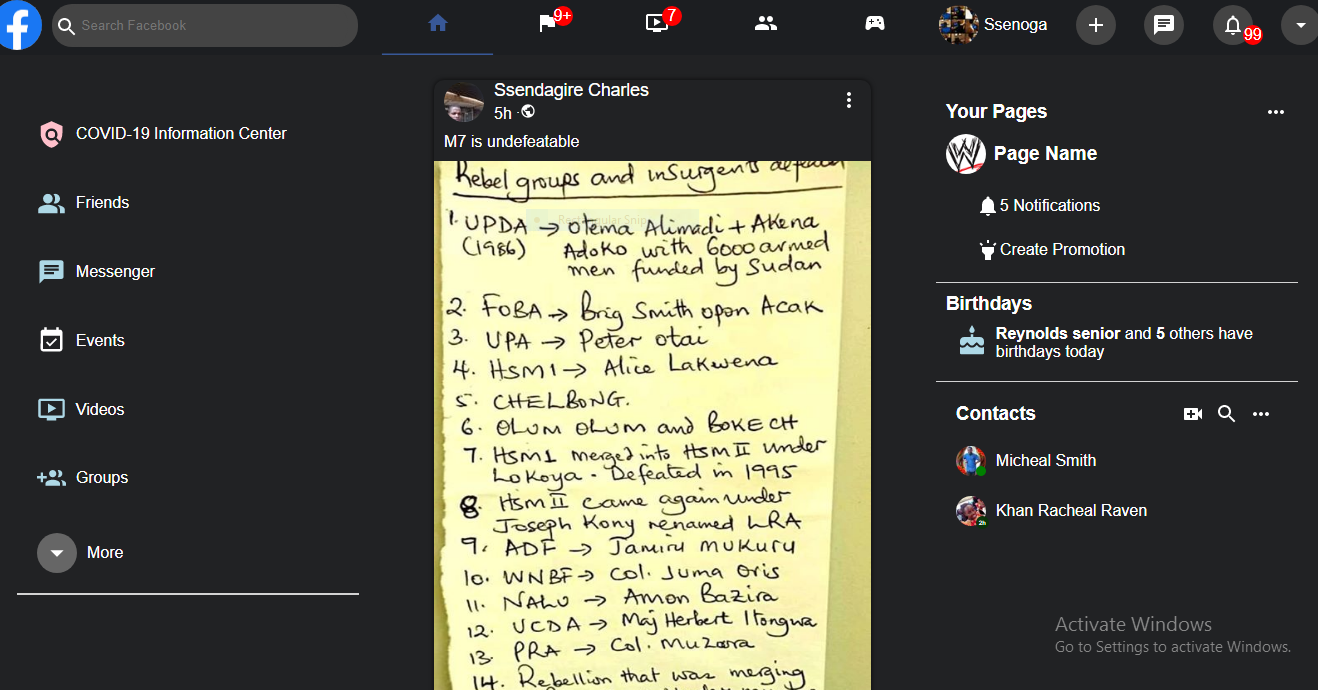 Search Facebook
9+
7
Ssenoga
99
COVID-19 Information Center
Friends
Messenger
Events
Videos
Groups
More
Ssendagire Charles
5h ·
M7 is undefeatable
Rebel groups and insurgents
1. UPDA → Otema Alimadi + Akena
(1986) Adoko with 6000 armed
men funded by Sudan
2. FOBA → Brig Smith opon Acak
3. UPA → Peter Otai
4. HSM1 → Alice Lakwena
5. CHELBONG.
6. OLUM OLUM and BOKECH
7. HSM1 merged into HSM II under
Lokoya - Defeated in 1995
8. HSM II came again under
Joseph Kony renamed LRA
9. ADF → Jamiru MUKURU
10. WNBF → Col. Juma Oris
11. NALU → Amon Bazira
12. UCDA → Maj Herbert Itongwa
13. PRA → Col. Muzoora
14. Rebellion that was merging
Your Pages
Page Name
5 Notifications
Create Promotion
Birthdays
Reynolds senior and 5 others have
birthdays today
Contacts
Micheal Smith
Khan Racheal Raven
2h
Activate Windows
Go to Settings to activate Windows.